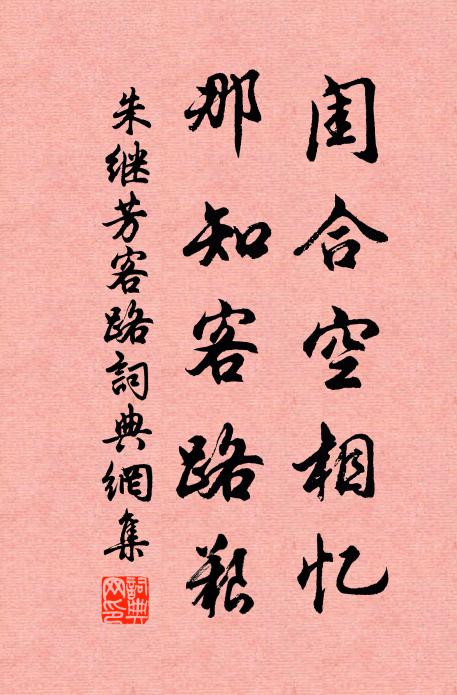 闺合空相忆
那知客路艰
朱继芳客路詞典網集
詞典网印